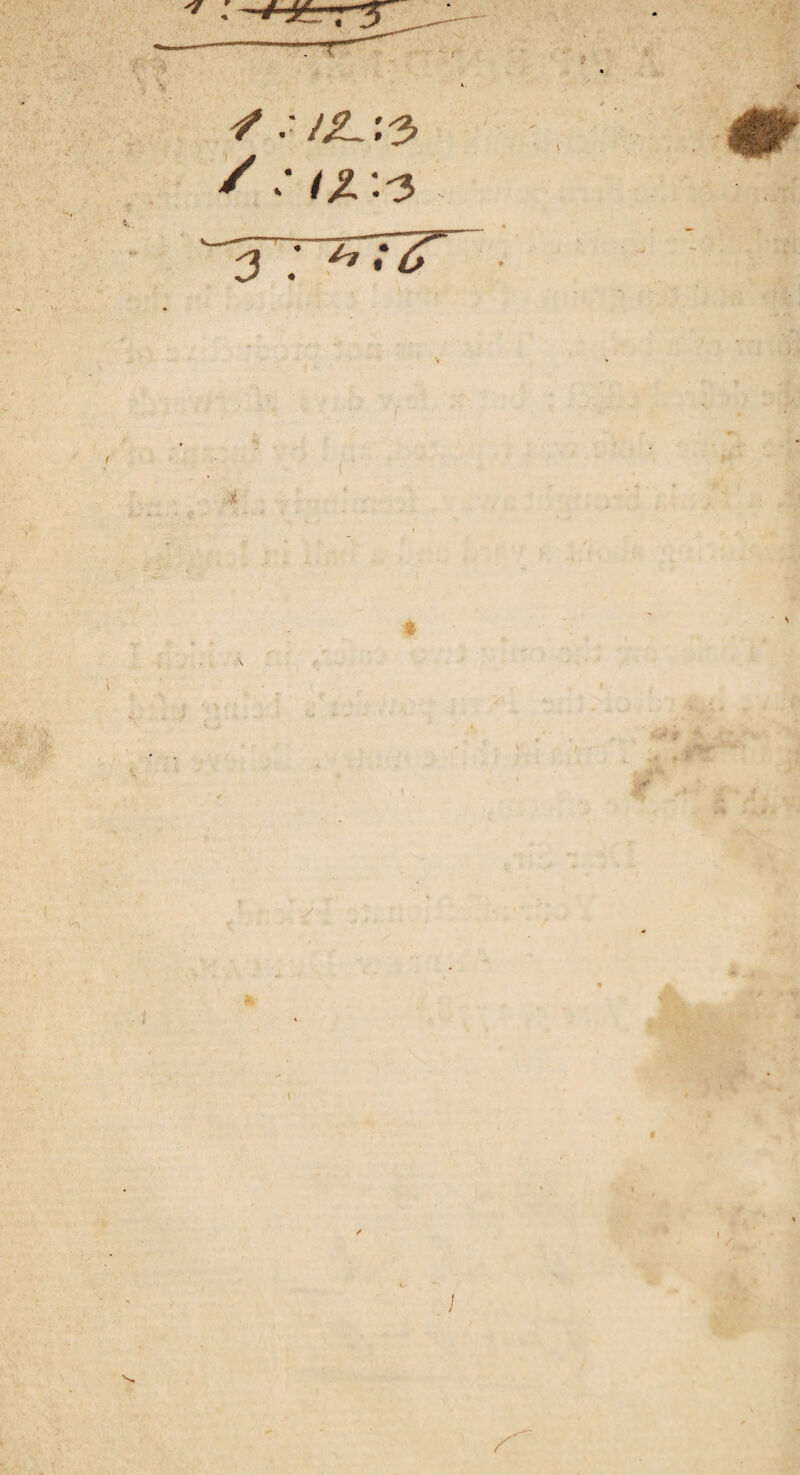 1:12:3
1:12:3
3:4:6